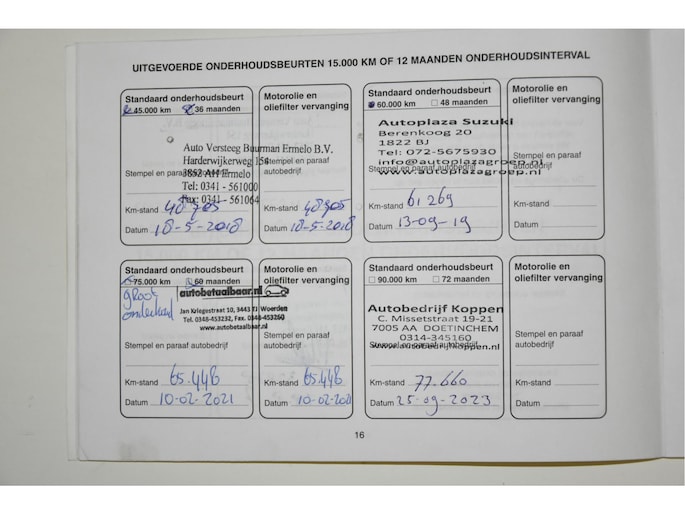 UITGEVOERDE ONDERHOUDSBEURTEN 15.000 KM OF 12 MAANDEN ONDERHOUDSINTERVAL
Standaard onderhoudsbeurt
45.000 km 36 maanden
Auto Versteeg Buurman Ermelo B.V.
Harderwijkerweg 154
3852 AH Ermelo
Stempel en paraaf
Tel: 0341 - 561000
Fax: 0341 - 561064
Km-stand 48705
Datum 18-5-2018
Motorolie en
oliefilter vervanging
Stempel en paraaf
autobedrijf
Km-stand 48705
Datum 18-5-2018
60.000 km 48 maanden
Autoplaza Suzuki
Berenkoog 20
1822 BJ
Tel: 072-5675930
info@autoplazagroep.nl
www.autoplazagroep.nl
Km-stand 61269
Datum 13-09-19
Motorolie en
oliefilter vervanging
Stempel en paraaf
autobedrijf
Km-stand
Datum
Standaard onderhoudsbeurt
75.000 km 60 maanden
groot
onderhoud
autobetaalbaar.nl
Jan Kriegestraat 10, 3443 TJ Woerden
Tel. 0348-453232, Fax. 0348-453260
www.autobetaalbaar.nl
Stempel en paraaf autobedrijf
Km-stand 65.448
Datum 10-02-2021
Motorolie en
oliefilter vervanging
Stempel en paraaf
autobedrijf
Km-stand 65.448
Datum 10-02-2021
Standaard onderhoudsbeurt
90.000 km 72 maanden
Autobedrijf Koppen
C. Missetstraat 19-21
7005 AA DOETINCHEM
0314-345160
Stempel en paraaf autobedrijf
www.autobedrijfkoppen.nl
Km-stand 77.660
Datum 25-09-2023
Motorolie en
oliefilter vervanging
Stempel en paraaf
autobedrijf
Km-stand
Datum
16